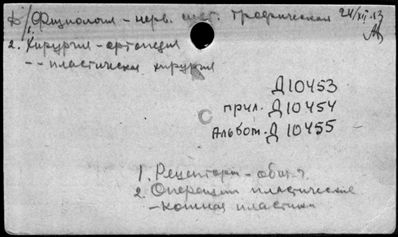 Д/1. Физиология - нерв. сист. трофическая 24/XII-13
2. Хирургия - ортопедия
- - пластическая хирургия
Д10453
прил. Д10454
Альбом. Д10455
1. Рецепторы - общ.
2. Операции пластические
- кожная пластика